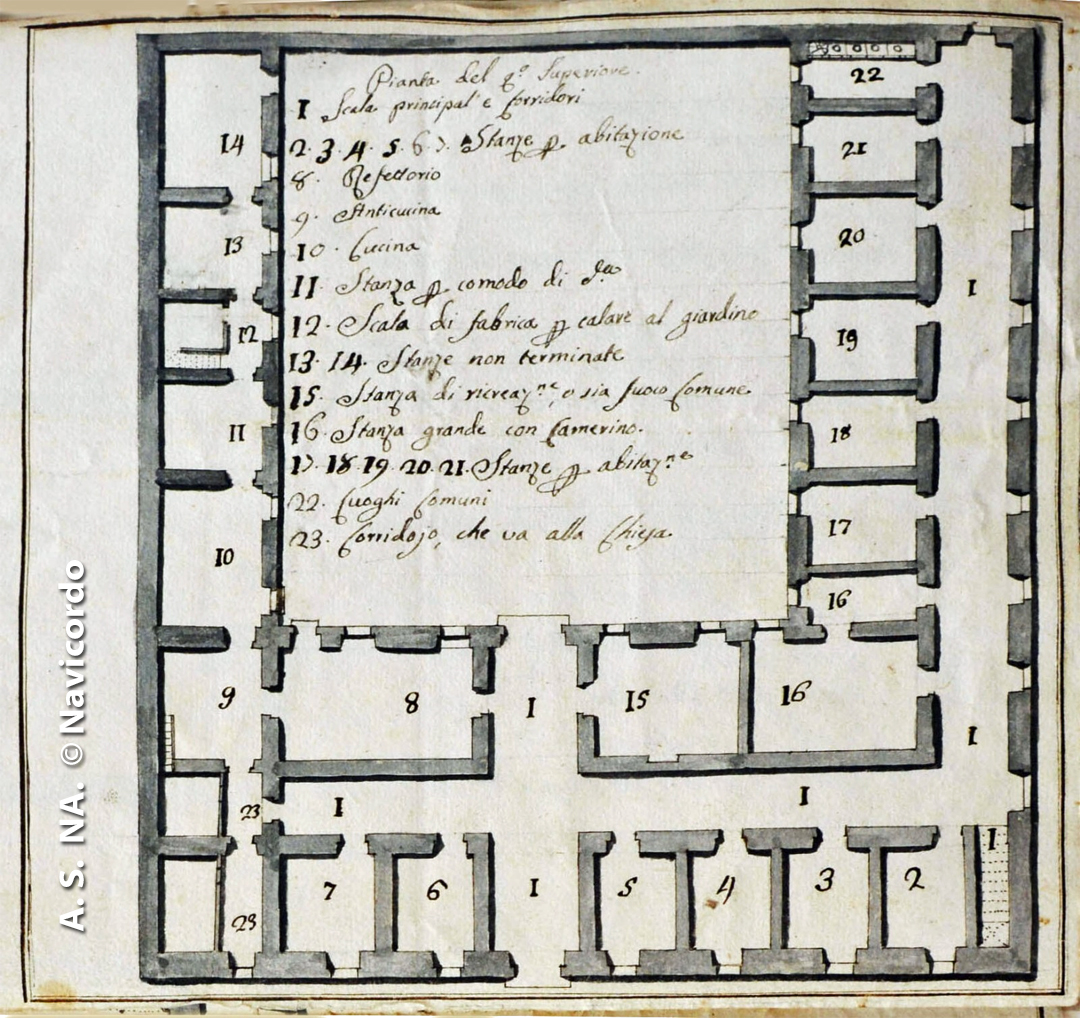 Pianta del q.º Superiore.
1 Scala principal' e Corridori
2. 3. 4. 5. 6. 7. Stanze p. abitazione
8. Refettorio
9. Anticucina
10. Cucina
11. Stanza p. comodo di d.ᵃ
12. Scala di fabrica p. calare al giardino
13. 14. Stanze non terminate
15. Stanza di ricreaz.ⁿᵉ, o sia fuoco Comune
16. Stanza grande con Camerino.
17. 18. 19. 20. 21. Stanze p. abitaz.ⁿᵉ
22. Fuoghi Comuni
23. Corridojo, che va alla Chiesa.
14
13
12
11
10
9
23
23
8
1
15
16
16
17
18
19
20
21
22
1
1
1
1
7
6
1
5
4
3
2
1
A. S. NA. © Navicordo